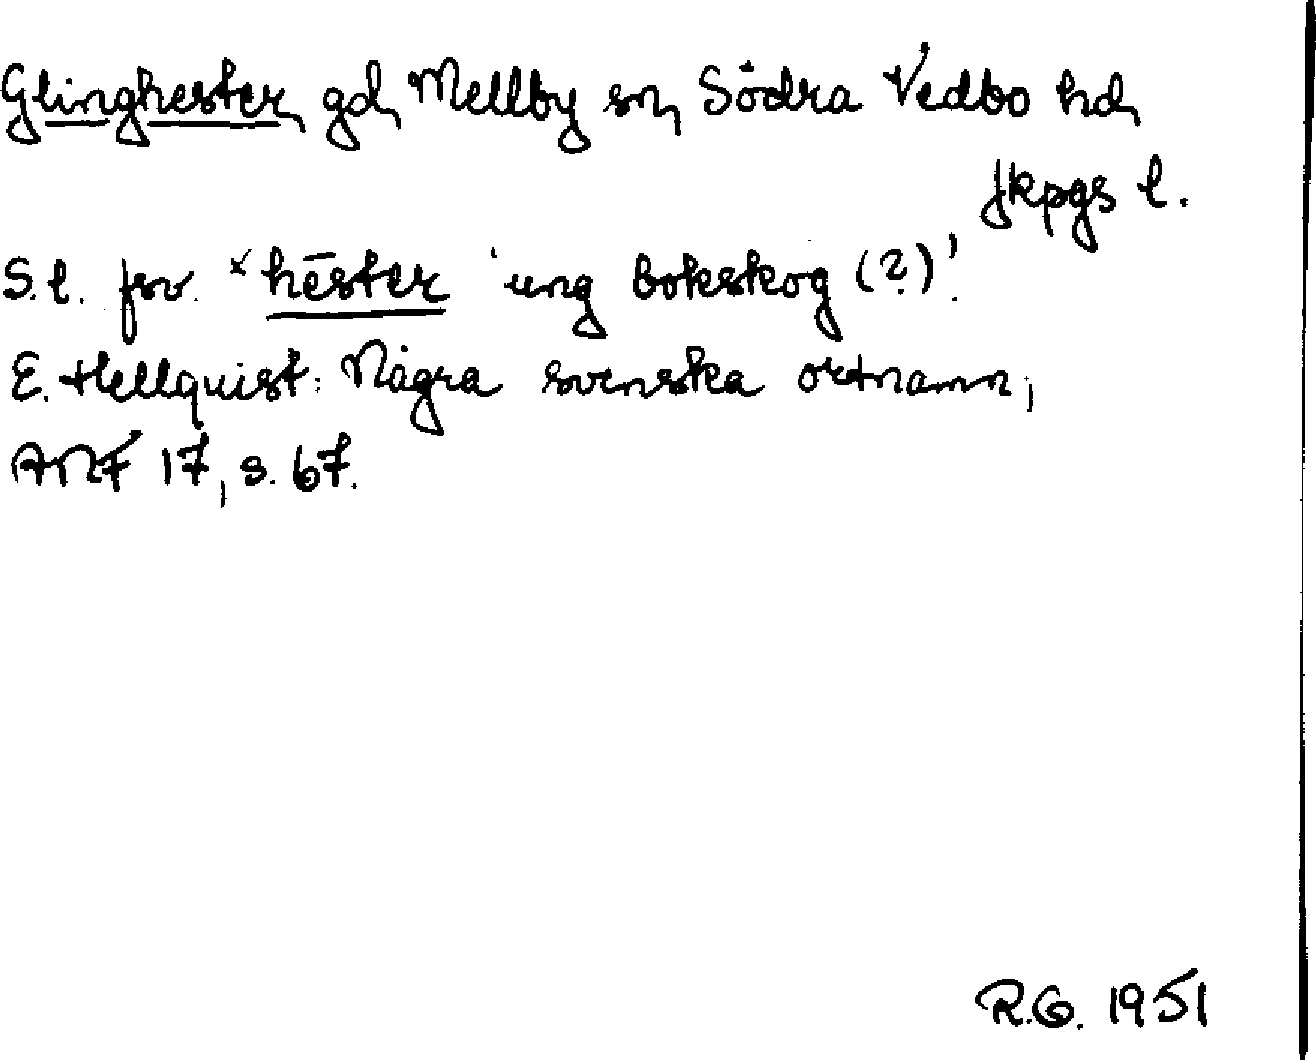 Glinghester, gd, Mellby sn, Södra Vedbo hd,
Jkpgs l.
S.l. fsv. *hēster 'ung bokskog (?)'.
E. Hellquist: Några svenska ortnamn,
ANF 17, s. 67.
R.G. 1951